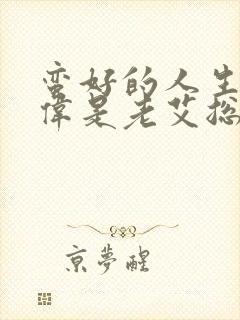 蛮好的人生
偉是老艾掋
京夢醒